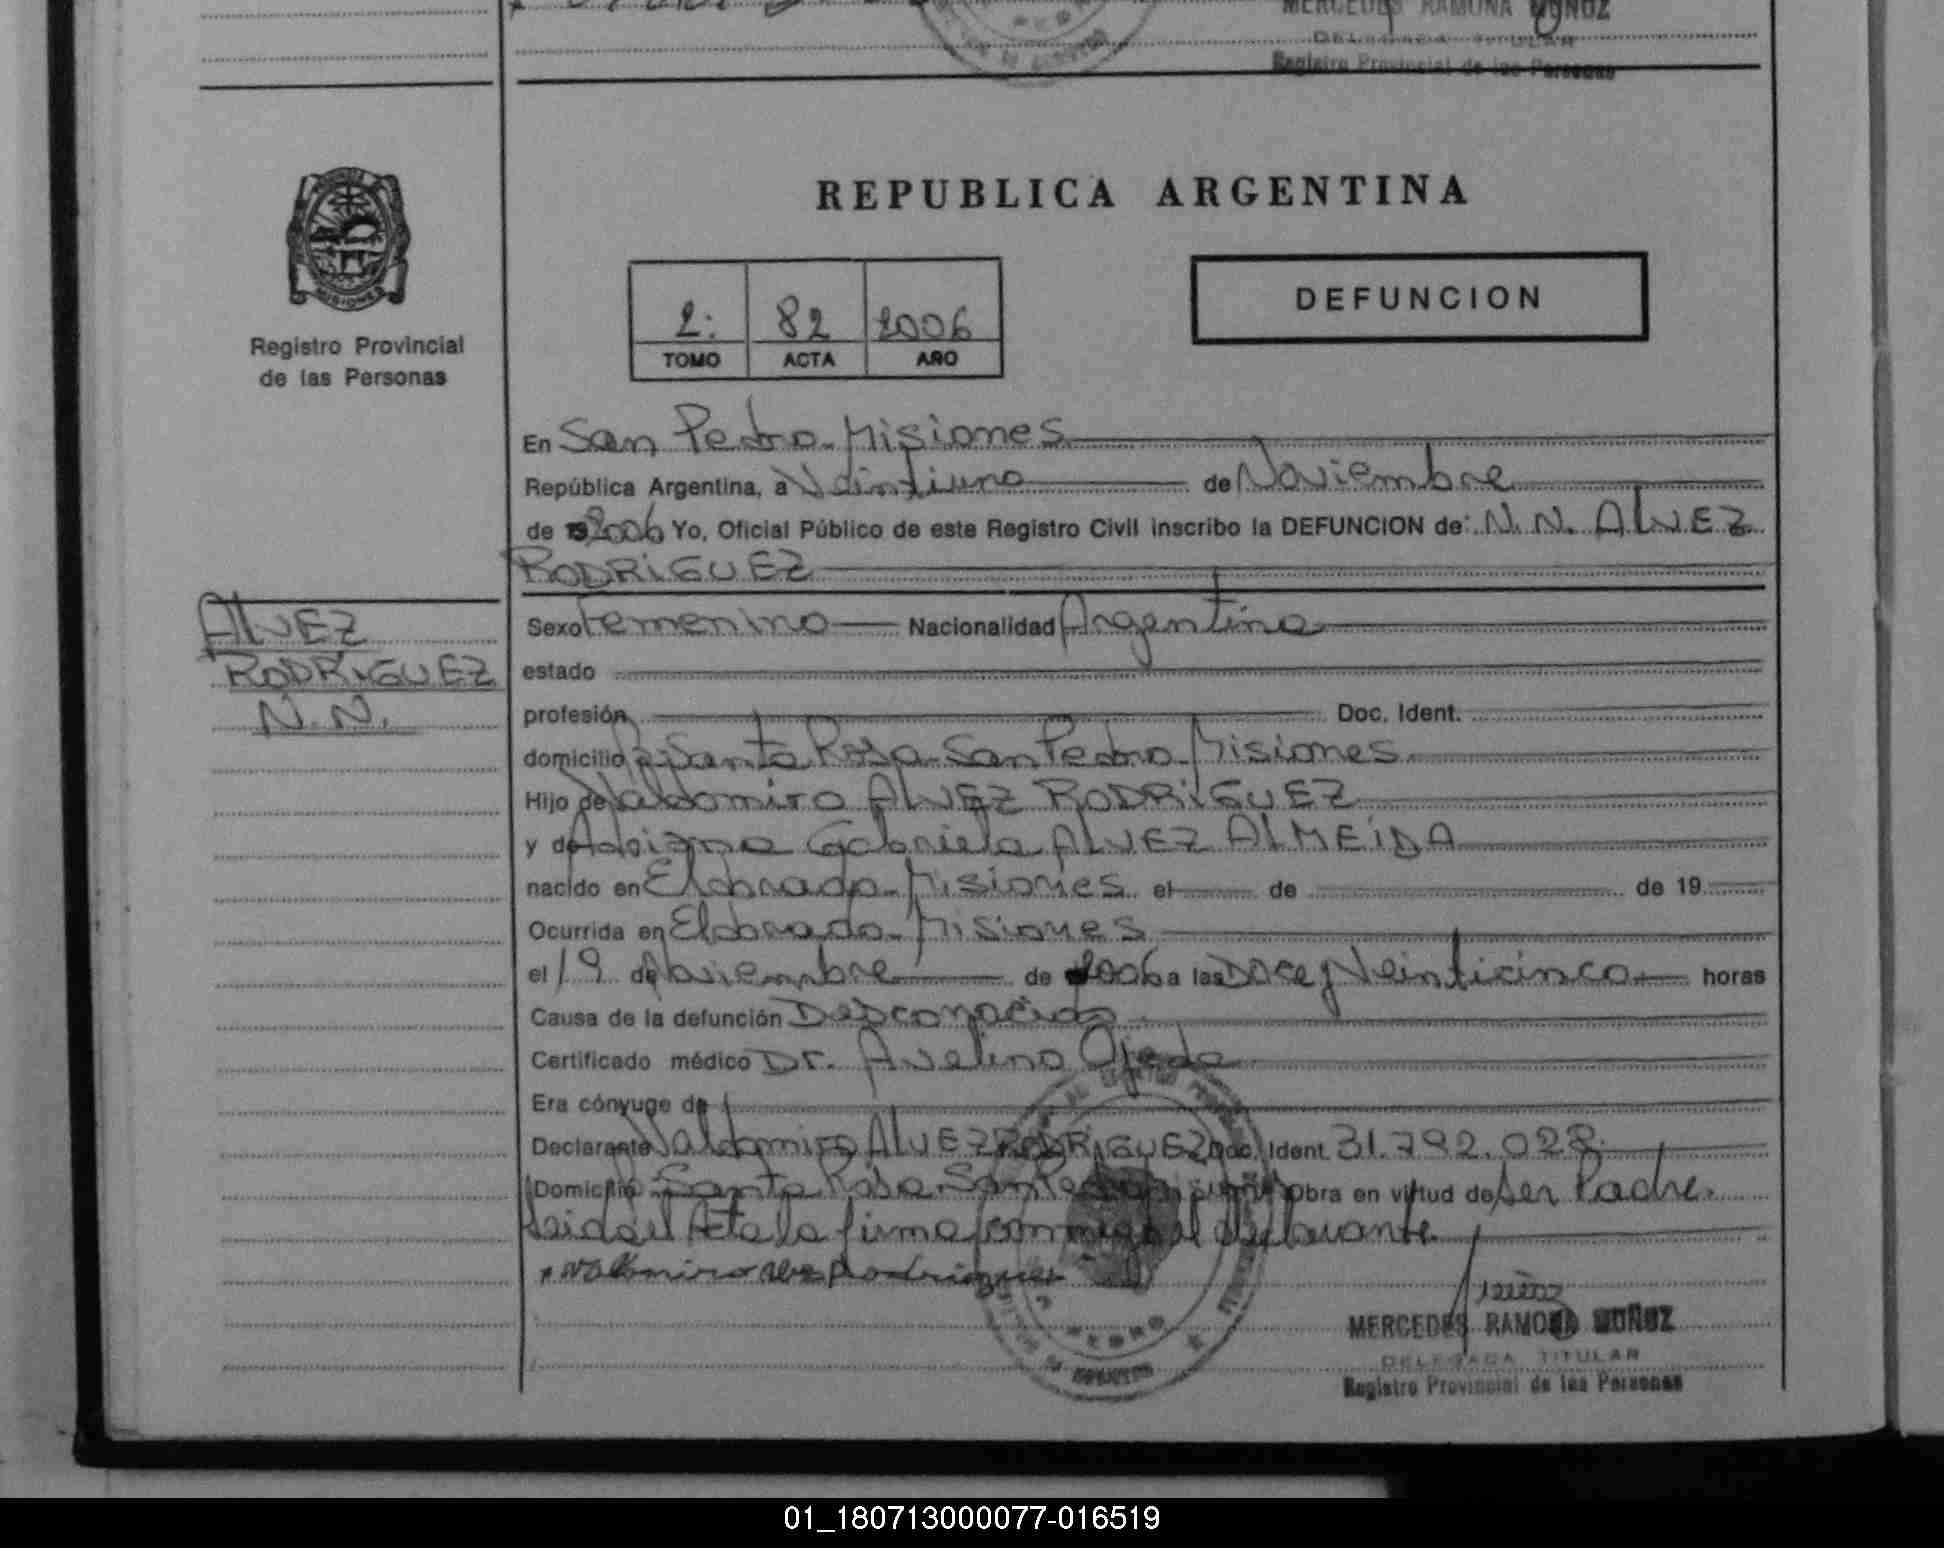 MERCEDES RAMONA MUÑOZ
DELEGADA TITULAR
Registro Provincial de las Personas
MISIONES
Registro Provincial
de las Personas
REPUBLICA ARGENTINA
2: 82 2006
TOMO ACTA AÑO
DEFUNCION
En San Pedro - Misiones
República Argentina, a Veintiuno de Noviembre
de 19 2006 Yo, Oficial Público de este Registro Civil inscribo la DEFUNCION de: N.N. ALVEZ
RODRIGUEZ
ALVEZ
RODRIGUEZ
N.N.
Sexo Femenino Nacionalidad Argentina
estado
profesión Doc. Ident.
domicilio Santa Rosa - San Pedro - Misiones
Hijo de Valdomiro ALVEZ RODRIGUEZ
y de Adriana Gabriela ALVEZ ALMEIDA
nacido en Elobrado - Misiones el de de 19
Ocurrida en Elobrado - Misiones
el 19 de Noviembre de 2006 a las Doce y Veinticinco horas
Causa de la defunción Desconocida
Certificado médico Dr. Avelino Ojeda
Era cónyuge de
Declarante Valdomiro ALVEZ RODRIGUEZ Doc. Ident. 31.792.028
Domicilio Santa Rosa - San Pedro Misiones Obra en virtud de ser Padre.
Leida el Acta la firma conmigo el declarante.
Valdomiro Alves Rodriguez
MERCEDES RAMONA MUÑOZ
DELEGADA TITULAR
Registro Provincial de las Personas
01_180713000077-016519